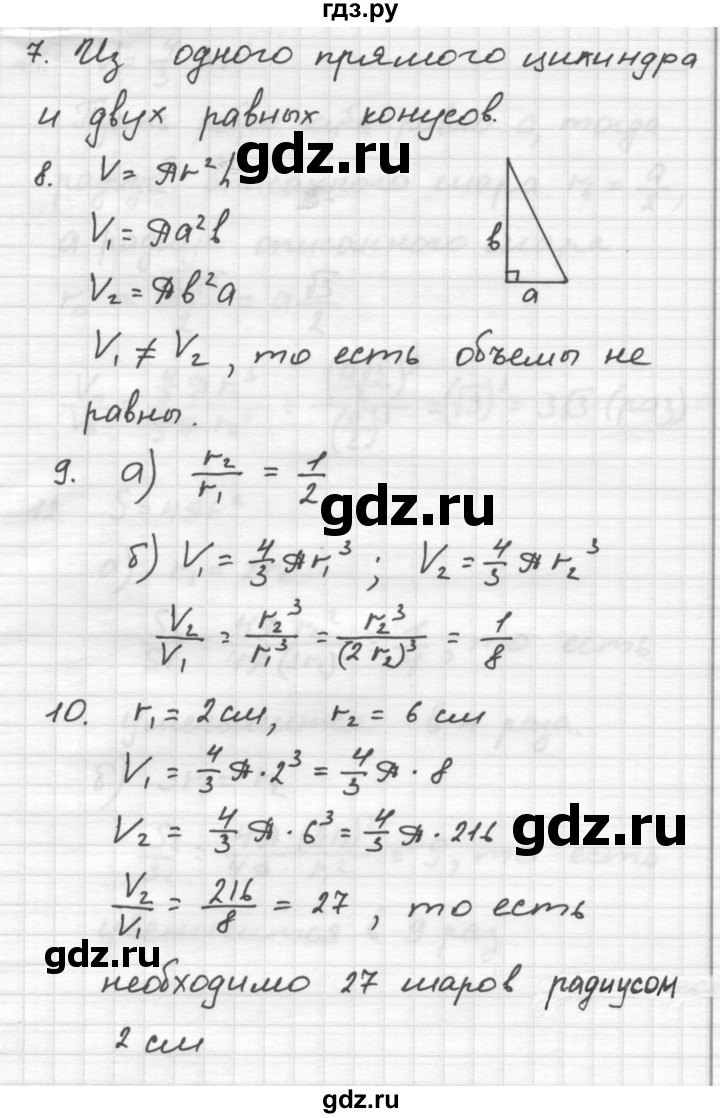 гдз.ру
7. Из одного прямого цилиндра
и двух равных конусов.
gdz.ru
8. V = πr²h
V₁ = πa²b
V₂ = πb²a
в
a
V₁ ≠ V₂, то есть объемы не
равны.
9. а) r₂/r₁ = 1/2
gdz.ru
б) V₁ = 4/3 πr₁³; V₂ = 4/3 πr₂³
V₂/V₁ = r₂³/r₁³ = r₂³/(2r₂)³ = 1/8
10. r₁ = 2 см, r₂ = 6 см
V₁ = 4/3 π · 2³ = 4/3 π · 8
V₂ = 4/3 π · 6³ = 4/3 π · 216
gdz.ru
V₂/V₁ = 216/8 = 27, то есть
gdz.ru
необходимо 27 шаров радиусом
2 см
gdz.ru